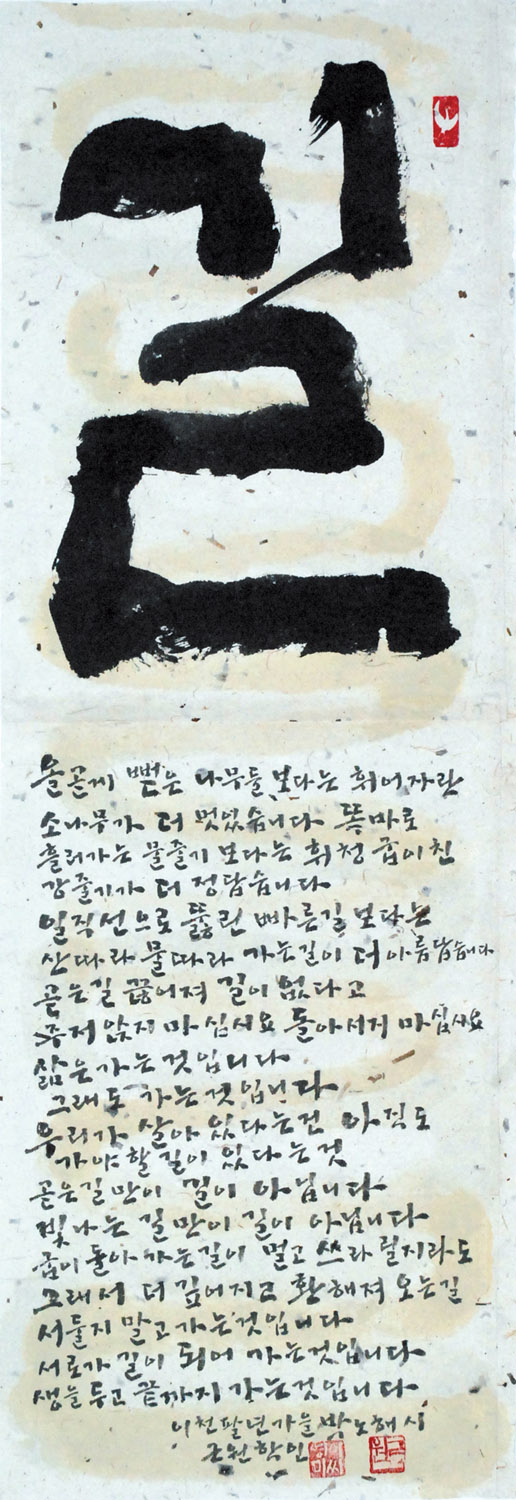 길
올곧게 뻗은 나무들 보다는 휘어 자란
소나무가 더 멋있습니다 똑바로
흘러가는 물줄기 보다는 휘청 굽이친
강줄기가 더 정답습니다
일직선으로 뚫린 빠른길 보다는
산따라 물따라 가는길이 더 아름답습니다
곧은길 끊어져 길이 없다고
주저 앉지 마십시요 돌아서지 마십시요
삶은 가는 것입니다
그래도 가는 것입니다
우리가 살아 있다는건 아직도
가야 할 길이 있다는 것
곧은길만이 길이 아닙니다
빛나는 길만이 길이 아닙니다
굽이 돌아가는 길이 멀고 쓰라릴지라도
그래서 더 깊어지고 환해져 오는길
서둘지 말고 가는것입니다
서로가 길이 되어 가는것입니다
생을 두고 끝까지 가는것입니다
이천팔년가을 박노해 시
근원학인